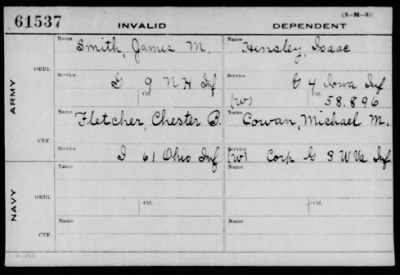 61537 INVALID DEPENDENT (3-M-3)
Name Name
Smith, James M. Hensley, Isaac
ORIG.
Service Service
G 9 N H Inf G 4 Iowa Inf
Ctf. Ctf.
(W) 58,896
ARMY
Name Name
Fletcher, Chester B. Cowan, Michael M.
Service Service
I 61 Ohio Inf (W) Corp G 8 W Va Inf
CTF.
Name Name
ORIG.
Ctf. Ctf.
NAVY
Name Name
CTF.